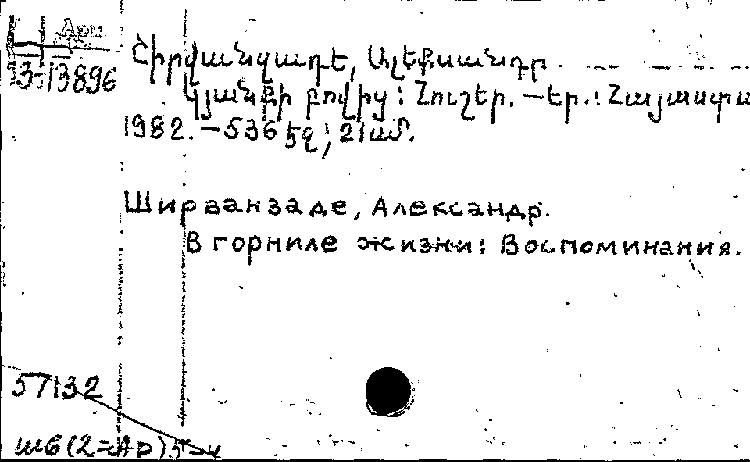 Арм
13-13896
Շիրվանզադե, Ալեքսանդր
Կյանքի բովից: Հուշեր. — Եր.: Հայաստա
1982. — 536 էջ; 21 սմ.
Ширванзаде, Александр.
В горниле жизни: Воспоминания.
57132
ш6(2=Ар)